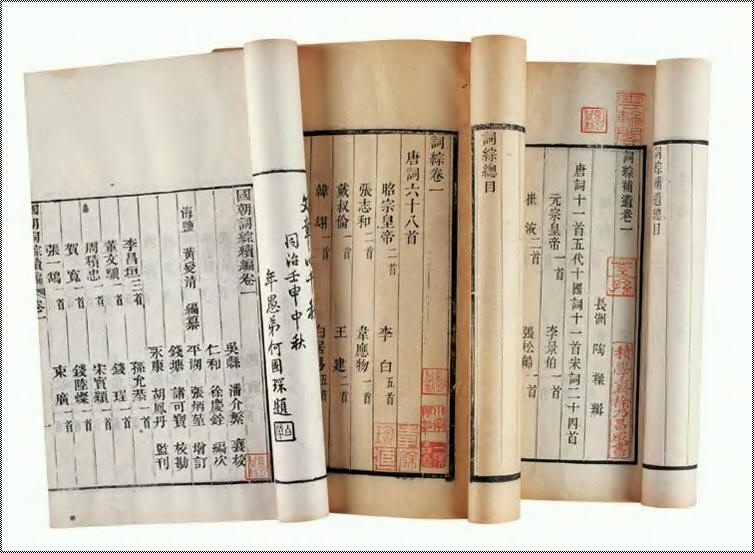 詞綜補遺總目
雲輪閣
詞綜補遺卷一
荃孫
積學齋徐乃昌藏書
長洲 陶樑 輯
唐詞十一首五代十國詞十一首宋詞二十四首
元宗皇帝一首 李景伯一首
崔液二首 張松齡一首
詞綜總目
詞綜卷一
唐詞六十八首
昭宗皇帝二首 李白五首
張志和二首 韋應物一首
戴叔倫一首 王建二首
韓翃一首 白居易五首
文章
同治壬申中秋
年愚弟何國琛題
國朝詞綜續編卷一
吳縣 潘介繁 襄校
仁和 徐慶銓 編次
海鹽 黃燮清 編纂 平湖 張炳堃 增訂
錢塘 諸可寶 校勘
永康 胡鳳丹 監刊
李昌垣三首 孫允恭一首
董文驥一首 錢珵一首
周積忠一首 宋實穎一首
賀寬一首 錢陸燦一首
張一鵠一首 束廣一首
國朝詞綜續編 卷一